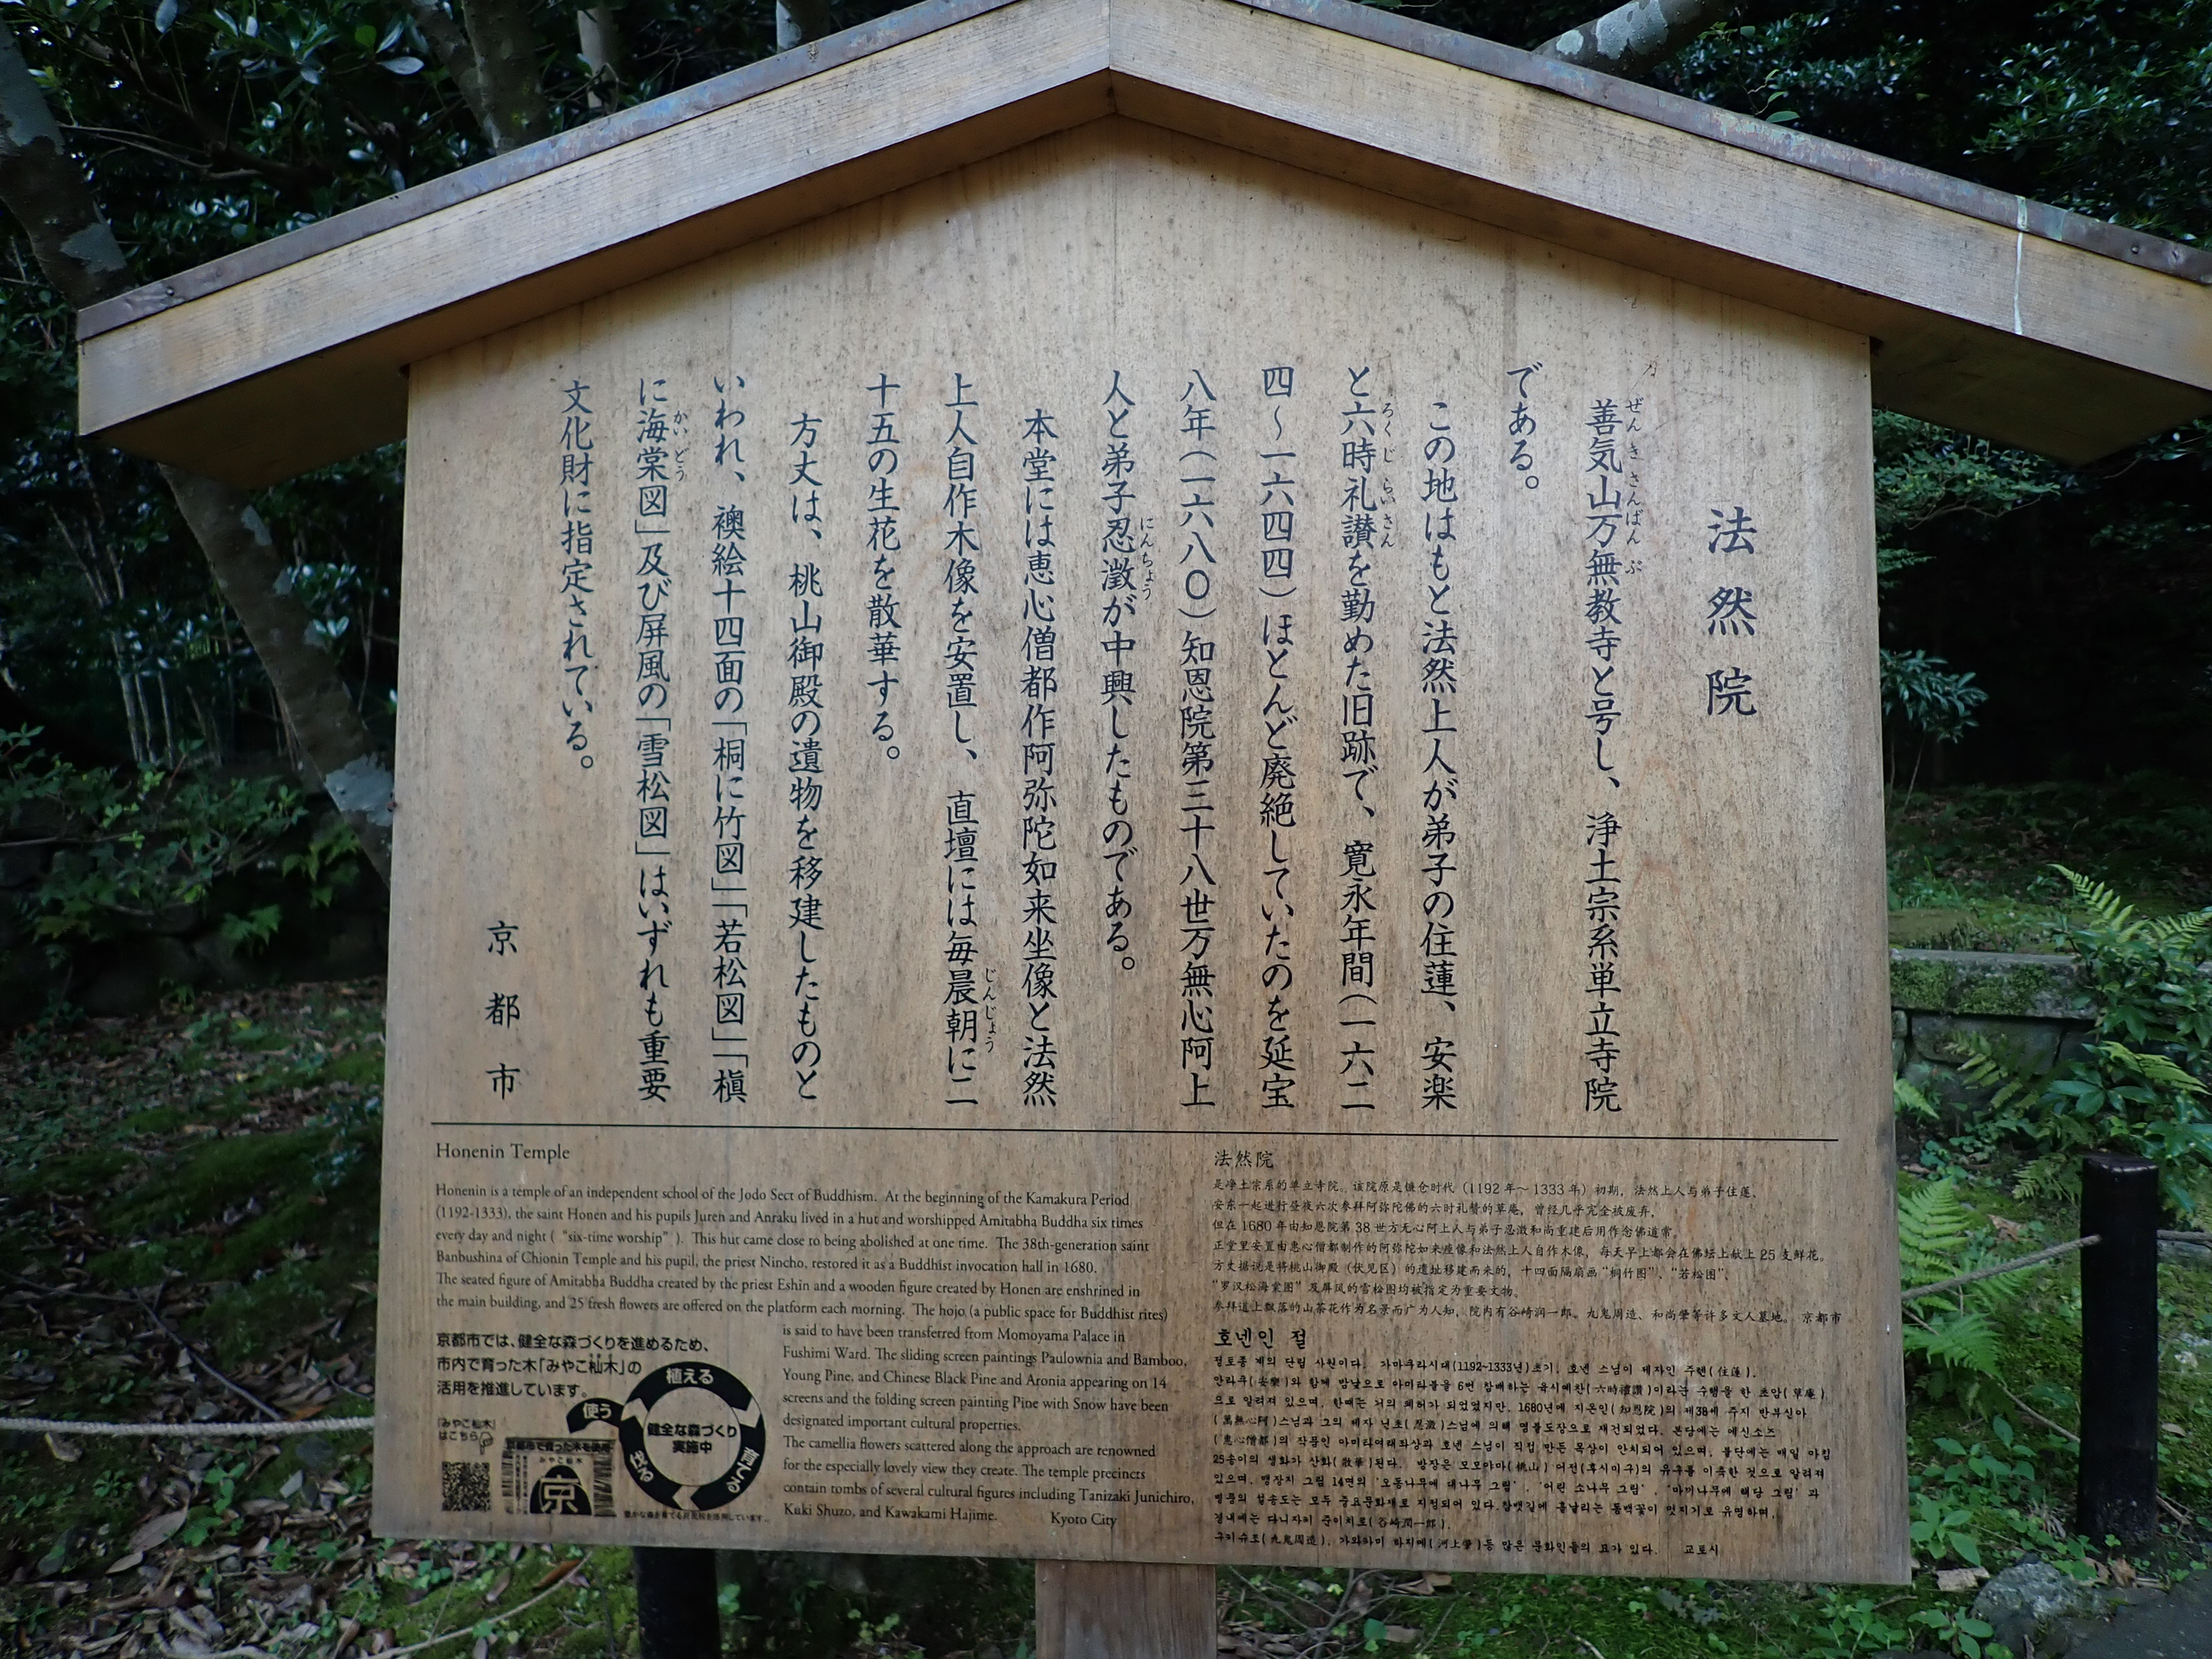 法然院
善気山万無教寺と号し、浄土宗系単立寺院
である。
この地はもと法然上人が弟子の住蓮、安楽
と六時礼讃を勤めた旧跡で、寛永年間(一六二
四〜一六四四)ほとんど廃絶していたのを延宝
八年(一六八〇)知恩院第三十八世万無心阿上
人と弟子忍澂が中興したものである。
本堂には恵心僧都作阿弥陀如来坐像と法然
上人自作木像を安置し、直壇には毎晨朝に二
十五の生花を散華する。
方丈は、桃山御殿の遺物を移建したものと
いわれ、襖絵十四面の「桐に竹図」「若松図」「槇
に海棠図」及び屏風の「雪松図」はいずれも重要
文化財に指定されている。
京都市
Honenin Temple
Honenin is a temple of an independent school of the Jodo Sect of Buddhism. At the beginning of the Kamakura Period
(1192-1333), the saint Honen and his pupils Juren and Anraku lived in a hut and worshipped Amitabha Buddha six times
every day and night ( "six-time worship" ). This hut came close to being abolished at one time. The 38th-generation saint
Banbushina of Chionin Temple and his pupil, the priest Nincho, restored it as a Buddhist invocation hall in 1680.
The seated figure of Amitabha Buddha created by the priest Eshin and a wooden figure created by Honen are enshrined in
the main building, and 25 fresh flowers are offered on the platform each morning. The hojo (a public space for Buddhist rites)
is said to have been transferred from Momoyama Palace in
Fushimi Ward. The sliding screen paintings Paulownia and Bamboo,
Young Pine, and Chinese Black Pine and Aronia appearing on 14
screens and the folding screen painting Pine with Snow have been
designated important cultural properties.
The camellia flowers scattered along the approach are renowned
for the especially lovely view they create. The temple precincts
contain tombs of several cultural figures including Tanizaki Junichiro,
Kuki Shuzo, and Kawakami Hajime. Kyoto City
京都市では、健全な森づくりを進めるため、
市内で育った木「みやこ杣木」の
活用を推進しています。
「みやこ杣木」
はこちら
京都市で育った木を使用
みやこ杣木
京
植える
育てる
伐る
使う
健全な森づくり
実施中
法然院
是净土宗系的单立寺院。该院原是镰仓时代（1192年～1333年）初期，法然上人与弟子住莲、
安东一起进行昼夜六次参拜阿弥陀佛的六时礼赞的草庵，曾经几乎完全被废弃，
但在1680年由知恩院第38世万无心阿上人与弟子忍澂和尚重建后用作念佛道常。
正堂里安置由惠心僧都制作的阿弥陀如来座像和法然上人自作木像，每天早上都会在佛坛上献上25支鲜花。
方丈据说是将桃山御殿（伏见区）的遗址移建而来的，十四面隔扇画“桐竹图”、“若松图”、
“罗汉松海棠图”及屏风的雪松图均被指定为重要文物。
参拜道上飘落的山茶花作为名景而广为人知，院内有谷崎润一郎、九鬼周造、和尚肇等许多文人墓地。 京都市
호넨인 절
정토종 계의 단립 사원이다. 가마쿠라시대(1192~1333년)초기, 호넨 스님이 제자인 주렌(住蓮),
안라쿠(安樂)와 함께 밤낮으로 아미타불을 6번 참배하는 육시예찬(六時禮讚)이라는 수행을 한 초암(草庵)
으로 알려져 있으며, 한때는 거의 폐허가 되었었지만, 1680년에 지온인(知恩院)의 제38세 주지 반부심아
(萬無心阿)스님과 그의 제자 닌초(忍澂)스님에 의해 염불도장으로 재건되었다. 본당에는 에신소즈
(惠心僧都)의 작품인 아미타여래좌상과 호넨 스님이 직접 만든 목상이 안치되어 있으며, 불단에는 매일 아침
25송이의 생화가 산화(散華)된다. 방장은 모모야마(桃山) 어전(후시미구)의 유구를 이축한 것으로 알려져
있으며, 맹장지 그림 14면의 '오동나무에 대나무 그림', '어린 소나무 그림', '마키나무에 해당 그림' 과
병풍의 설송도는 모두 중요문화재로 지정되어 있다.참뱃길에 흩날리는 동백꽃이 멋지기로 유명하며,
경내에는 다니자키 준이치로(谷崎潤一郎),
구키슈조(九鬼周造), 가와카미 하지메(河上肇)등 많은 문화인들의 묘가 있다. 교토시